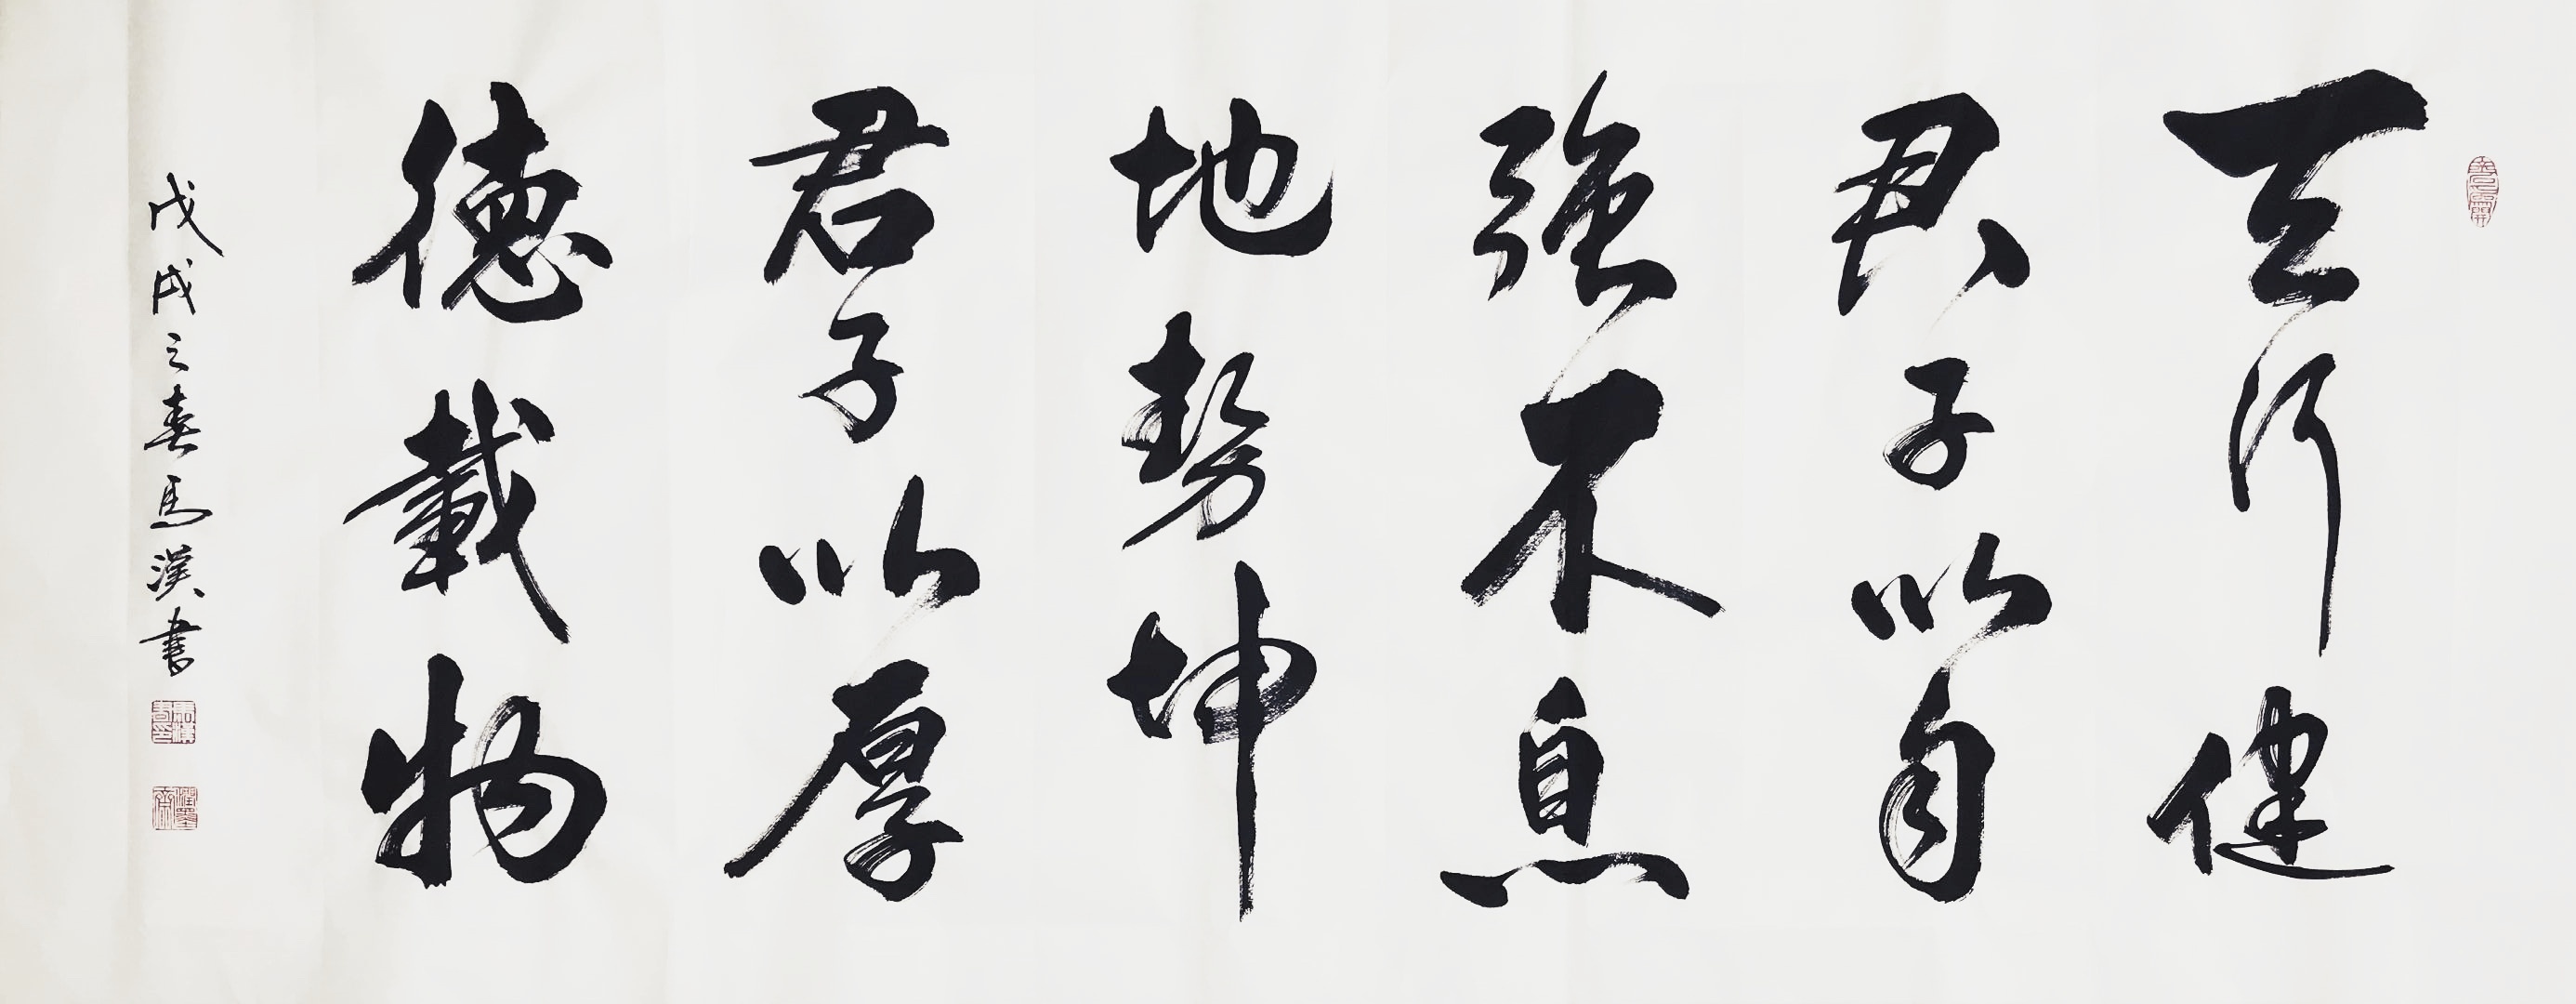 天行健
君子以自
強不息
地勢坤
君子以厚
德載物
戊戌之春馬漢書